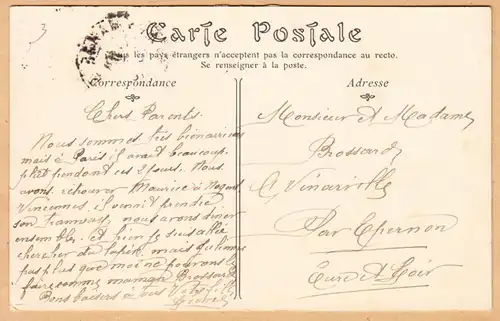 3
Carte Postale
Tous les pays étrangers n'acceptent pas la correspondance au recto.
Se renseigner à la poste.
Correspondance
Chers Parents.
Nous sommes très bien arrivé
mais à Paris il avait beaucoup
plut pendent ces 2 jours. Nous
avons rétrouver Maurice à Nogent
Vincennes il venait prendre
son tramway, nous avons diner
ensembles. Et bien je suis allée
chercher du lapin, mais
pas plus que moi ne pouvons le
faire comme maman Brossard
Bons baisers à tous Votre fille
Adresse
Monsieur Et Madame
Brossard
A Vinarville
Par Epernon
Eure Et Loir